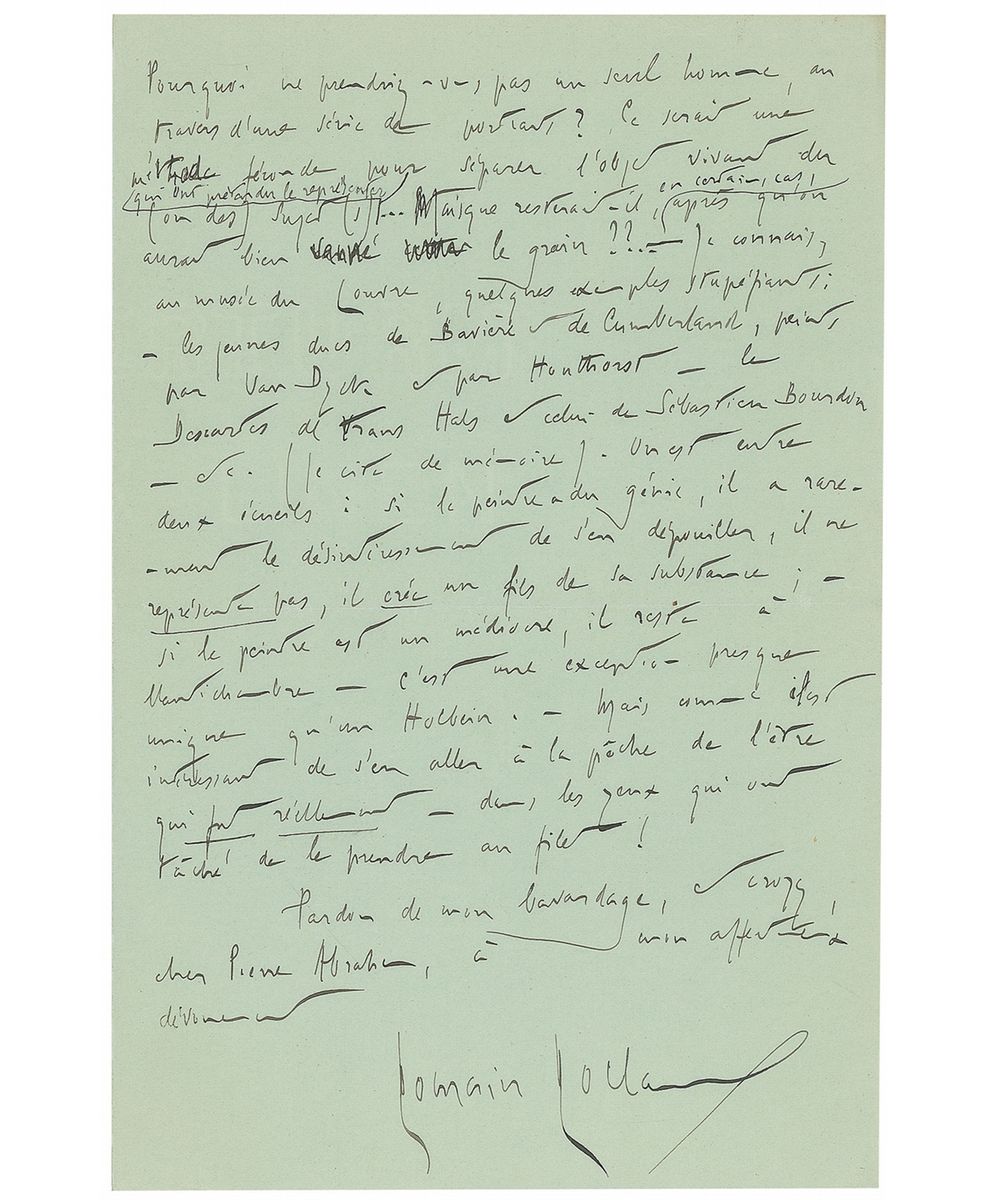 Pourquoi ne prendriez-vs pas un seul homme, au
travers d'une série de portraits ? Ce serait une
méthode féconde pour séparer l'objet vivant du
qui ont prétendu le représenter
en certains cas,
(ou des) sujet (s)... Mais que resterait-il, après qu'on
aurait bien vanné le grain ??.. — Je connais,
au musée du Louvre, quelques exemples stupéfiants :
— les jeunes ducs de Bavière et de Cumberland, peints
par Van Dyck et par Honthorst — le
Descartes de Frans Hals et celui de Sébastien Bourdon
— etc. (je cite de mémoire). On est entre
deux écueils : si le peintre a du génie, il a rare-
-ment le désintéressement de s'en dépouiller, il ne
représente pas, il crée un fils de sa substance ; —
si le peintre est un médiocre, il reste à
l'antichambre — c'est une exception presque
unique qu'un Holbein. — Mais comme il est
intéressant de s'en aller à la pêche de l'être
qui fut réellement — dans les yeux qui ont
tâché de le prendre au filet !
Pardon de mon bavardage, et croyez,
cher Pierre Abraham, à mon affectueux
dévouement
Romain Rolland